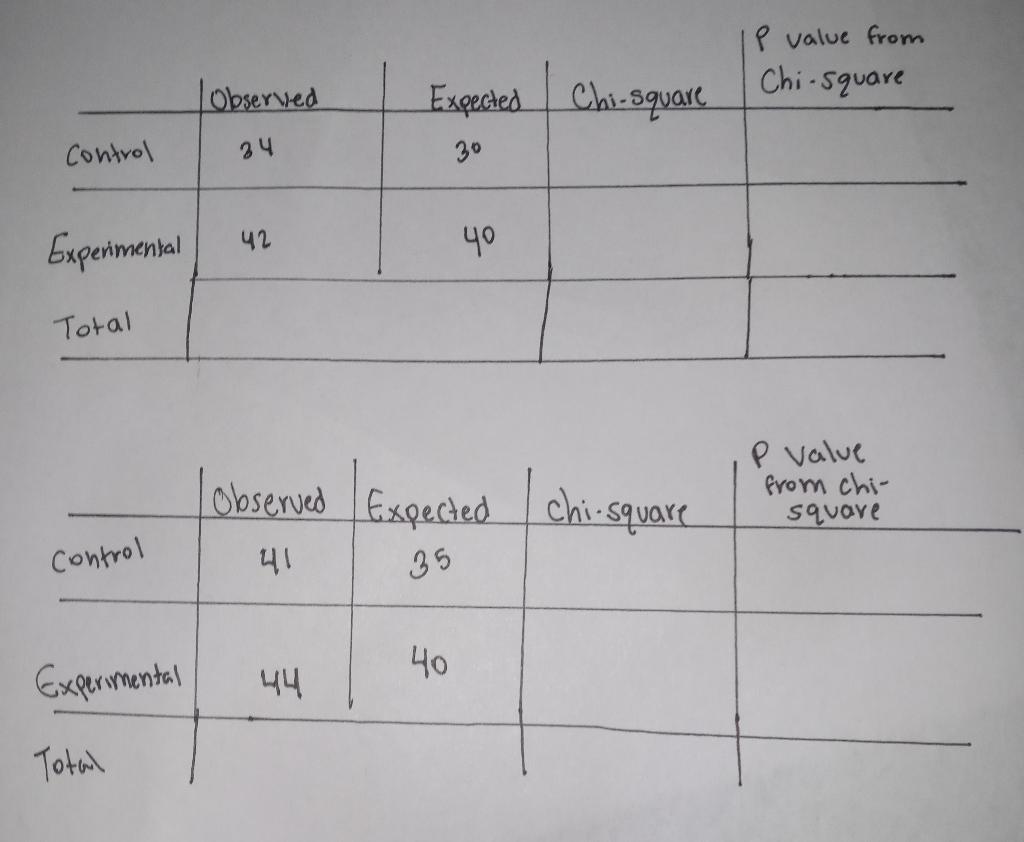 Observed Expected Chi-square P value from Chi-square
Control 34 30
Experimental 42 40
Total
Observed Expected Chi-square P value from chi-square
Control 41 35
Experimental 44 40
Total